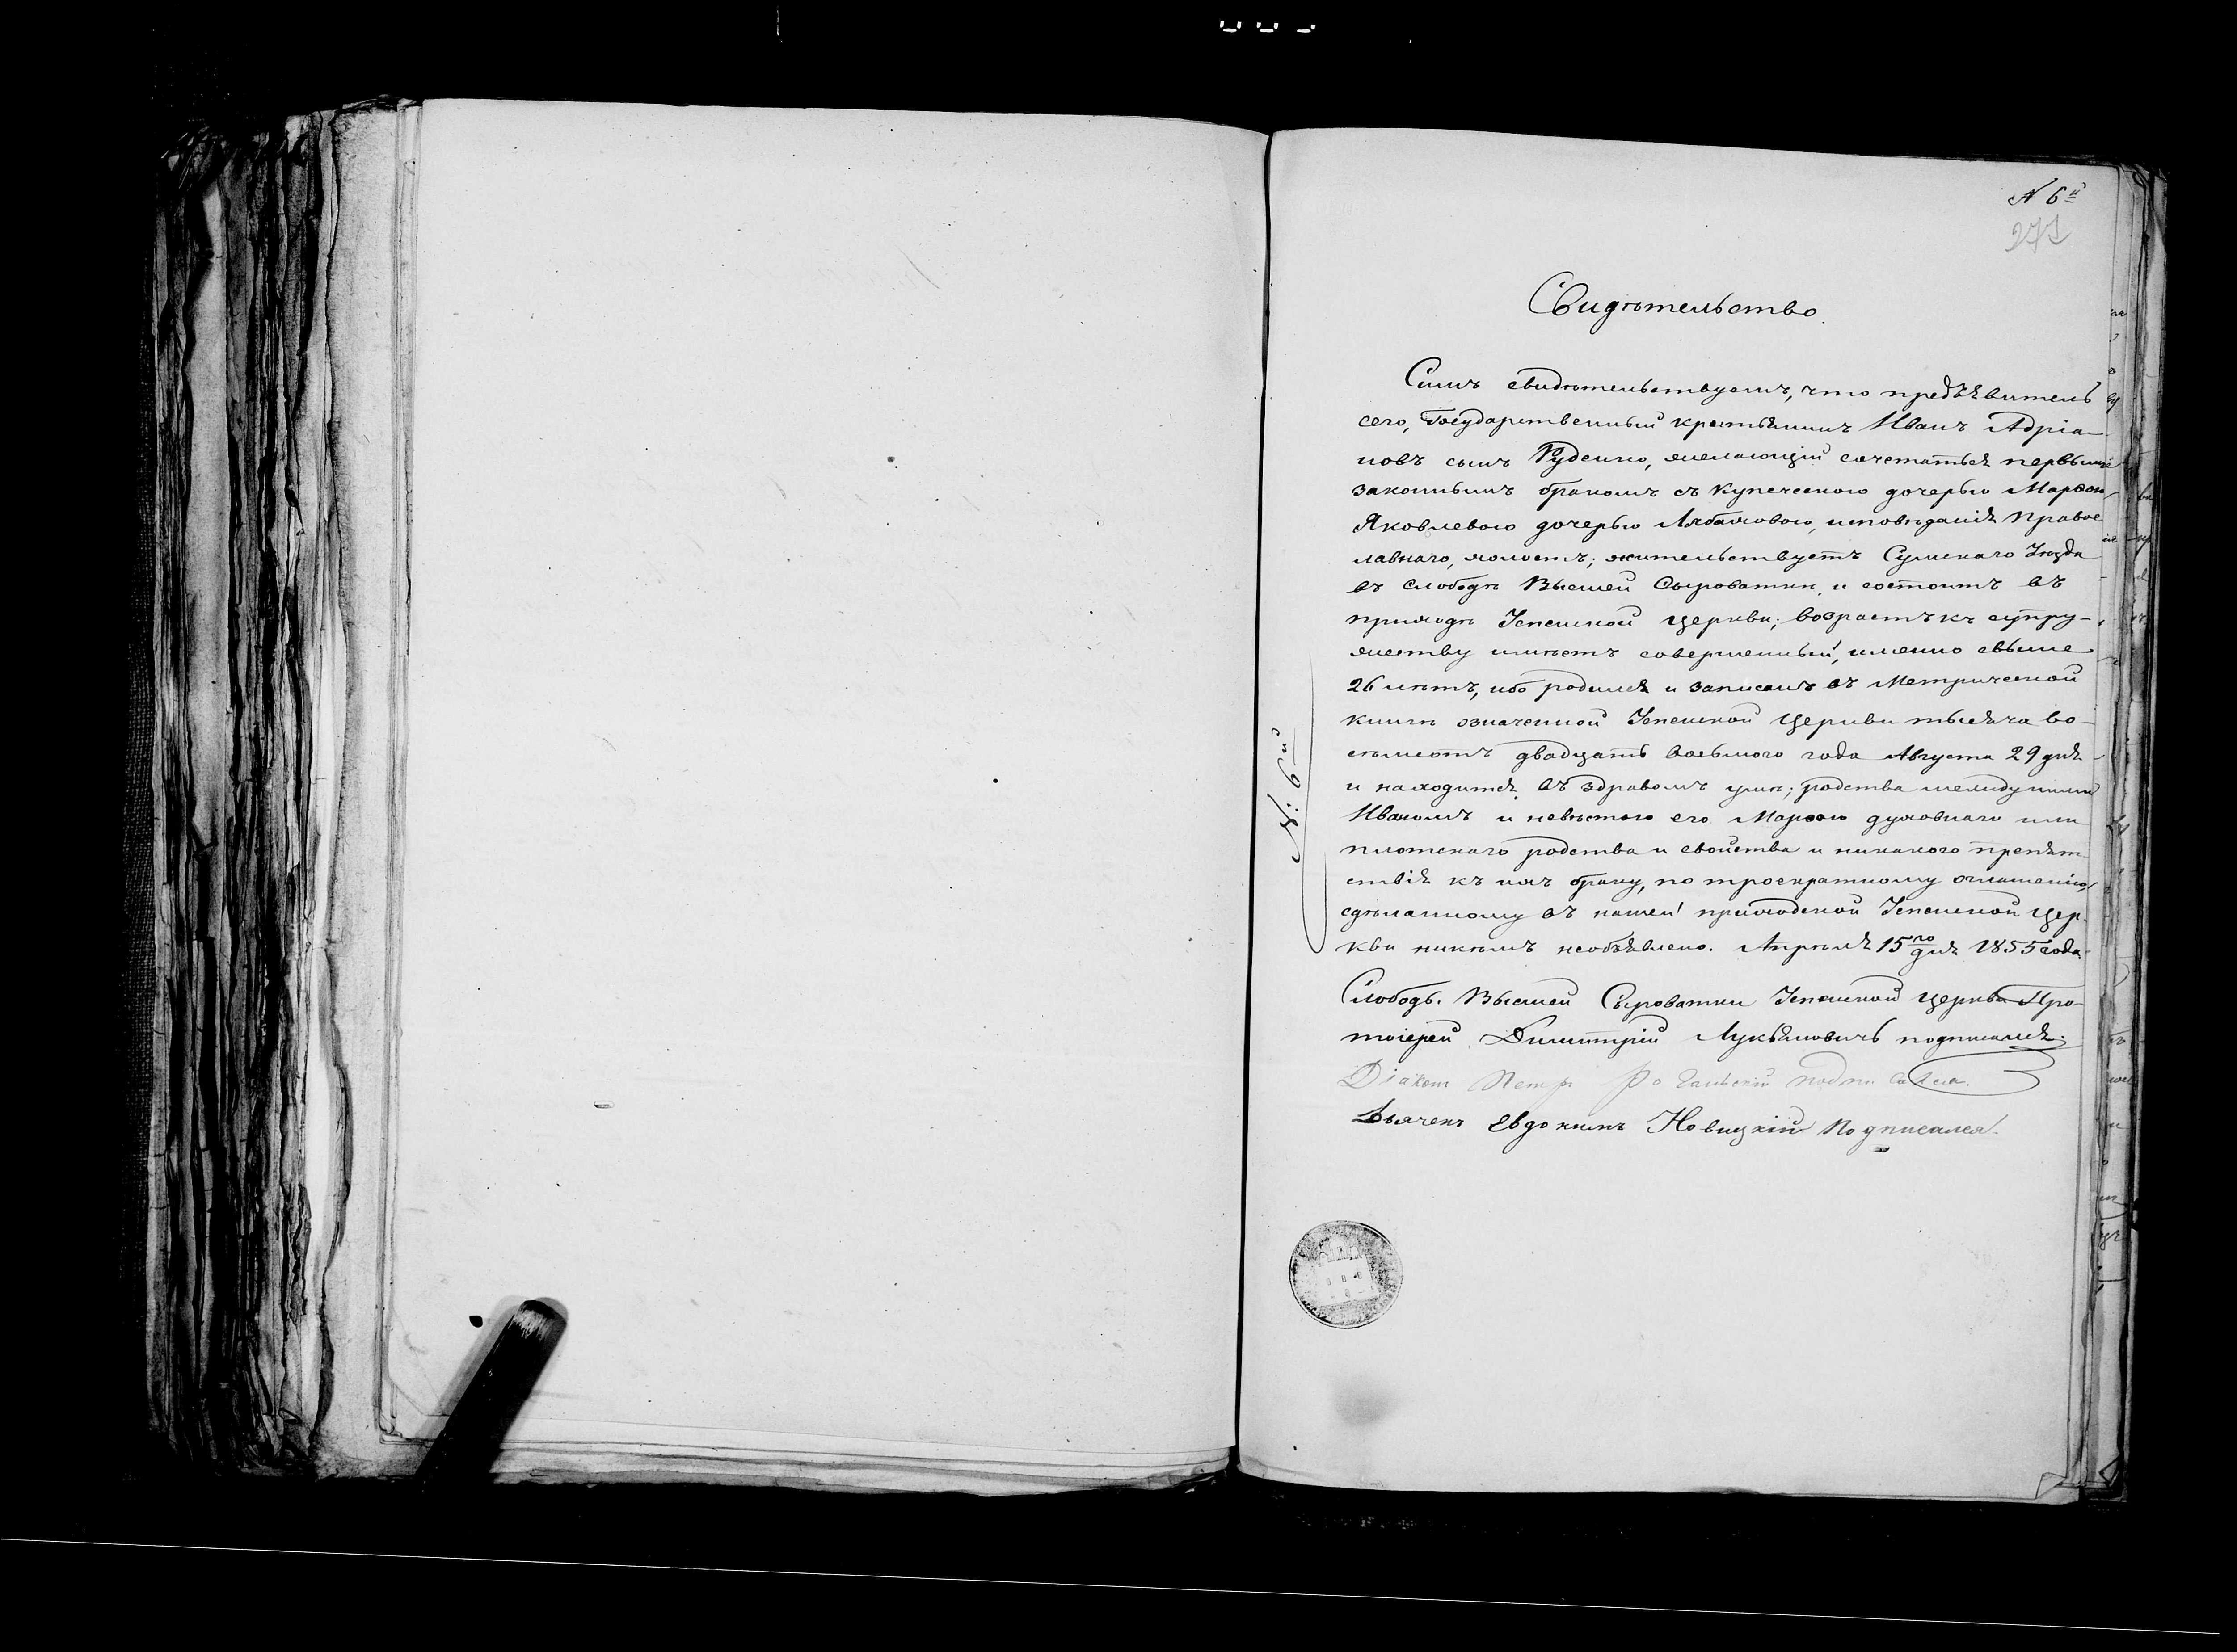 N 6й
271
Свидѣтельство.
Симъ свидѣтельствуемъ, что предъявитель
сего, Государственный крестьянинъ Иванъ Адріа-
новъ сынъ Руденко, желающій сочетаться первымъ
законнымъ бракомъ съ купеческою дочерью Марѳою
Яковлевою дочерью исповѣданія Правос
лавнаго, холостъ; жительствуетъ Сумскаго Уѣзда
въ Слободѣ Высшей Сыроватки, и состоитъ въ
приходѣ Успенской Церкви; возрастъ къ супру-
жеству имѣетъ совершенный, именно свыше
26 лѣтъ, ибо родился и записанъ въ Метрической
книгѣ означенной Успенской Церкви тысяча во-
сѣмсотъ двадцать восьмого года Августа 29 дня
и находится въ здравомъ умѣ; родства между нимъ
Иваномъ и невѣстою его Марѳою духовнаго или
плотскаго родства и свойства и никакого препят
ствія къ ихъ браку, по троекратному оглашенію,
сдѣланному въ нашей приходской Успенской Цер-
кви никѣмъ необъявлено. Апрѣля 15го дня 1855 года.
N: 6й
Слободы Высшей Сыроватки Успенской Церкви Про-
тоіерей Димитрій Лукьяновичъ подписался.
Діаконъ Петръ подписался.
Дьячекъ Евдокимъ Новицкій подписался.